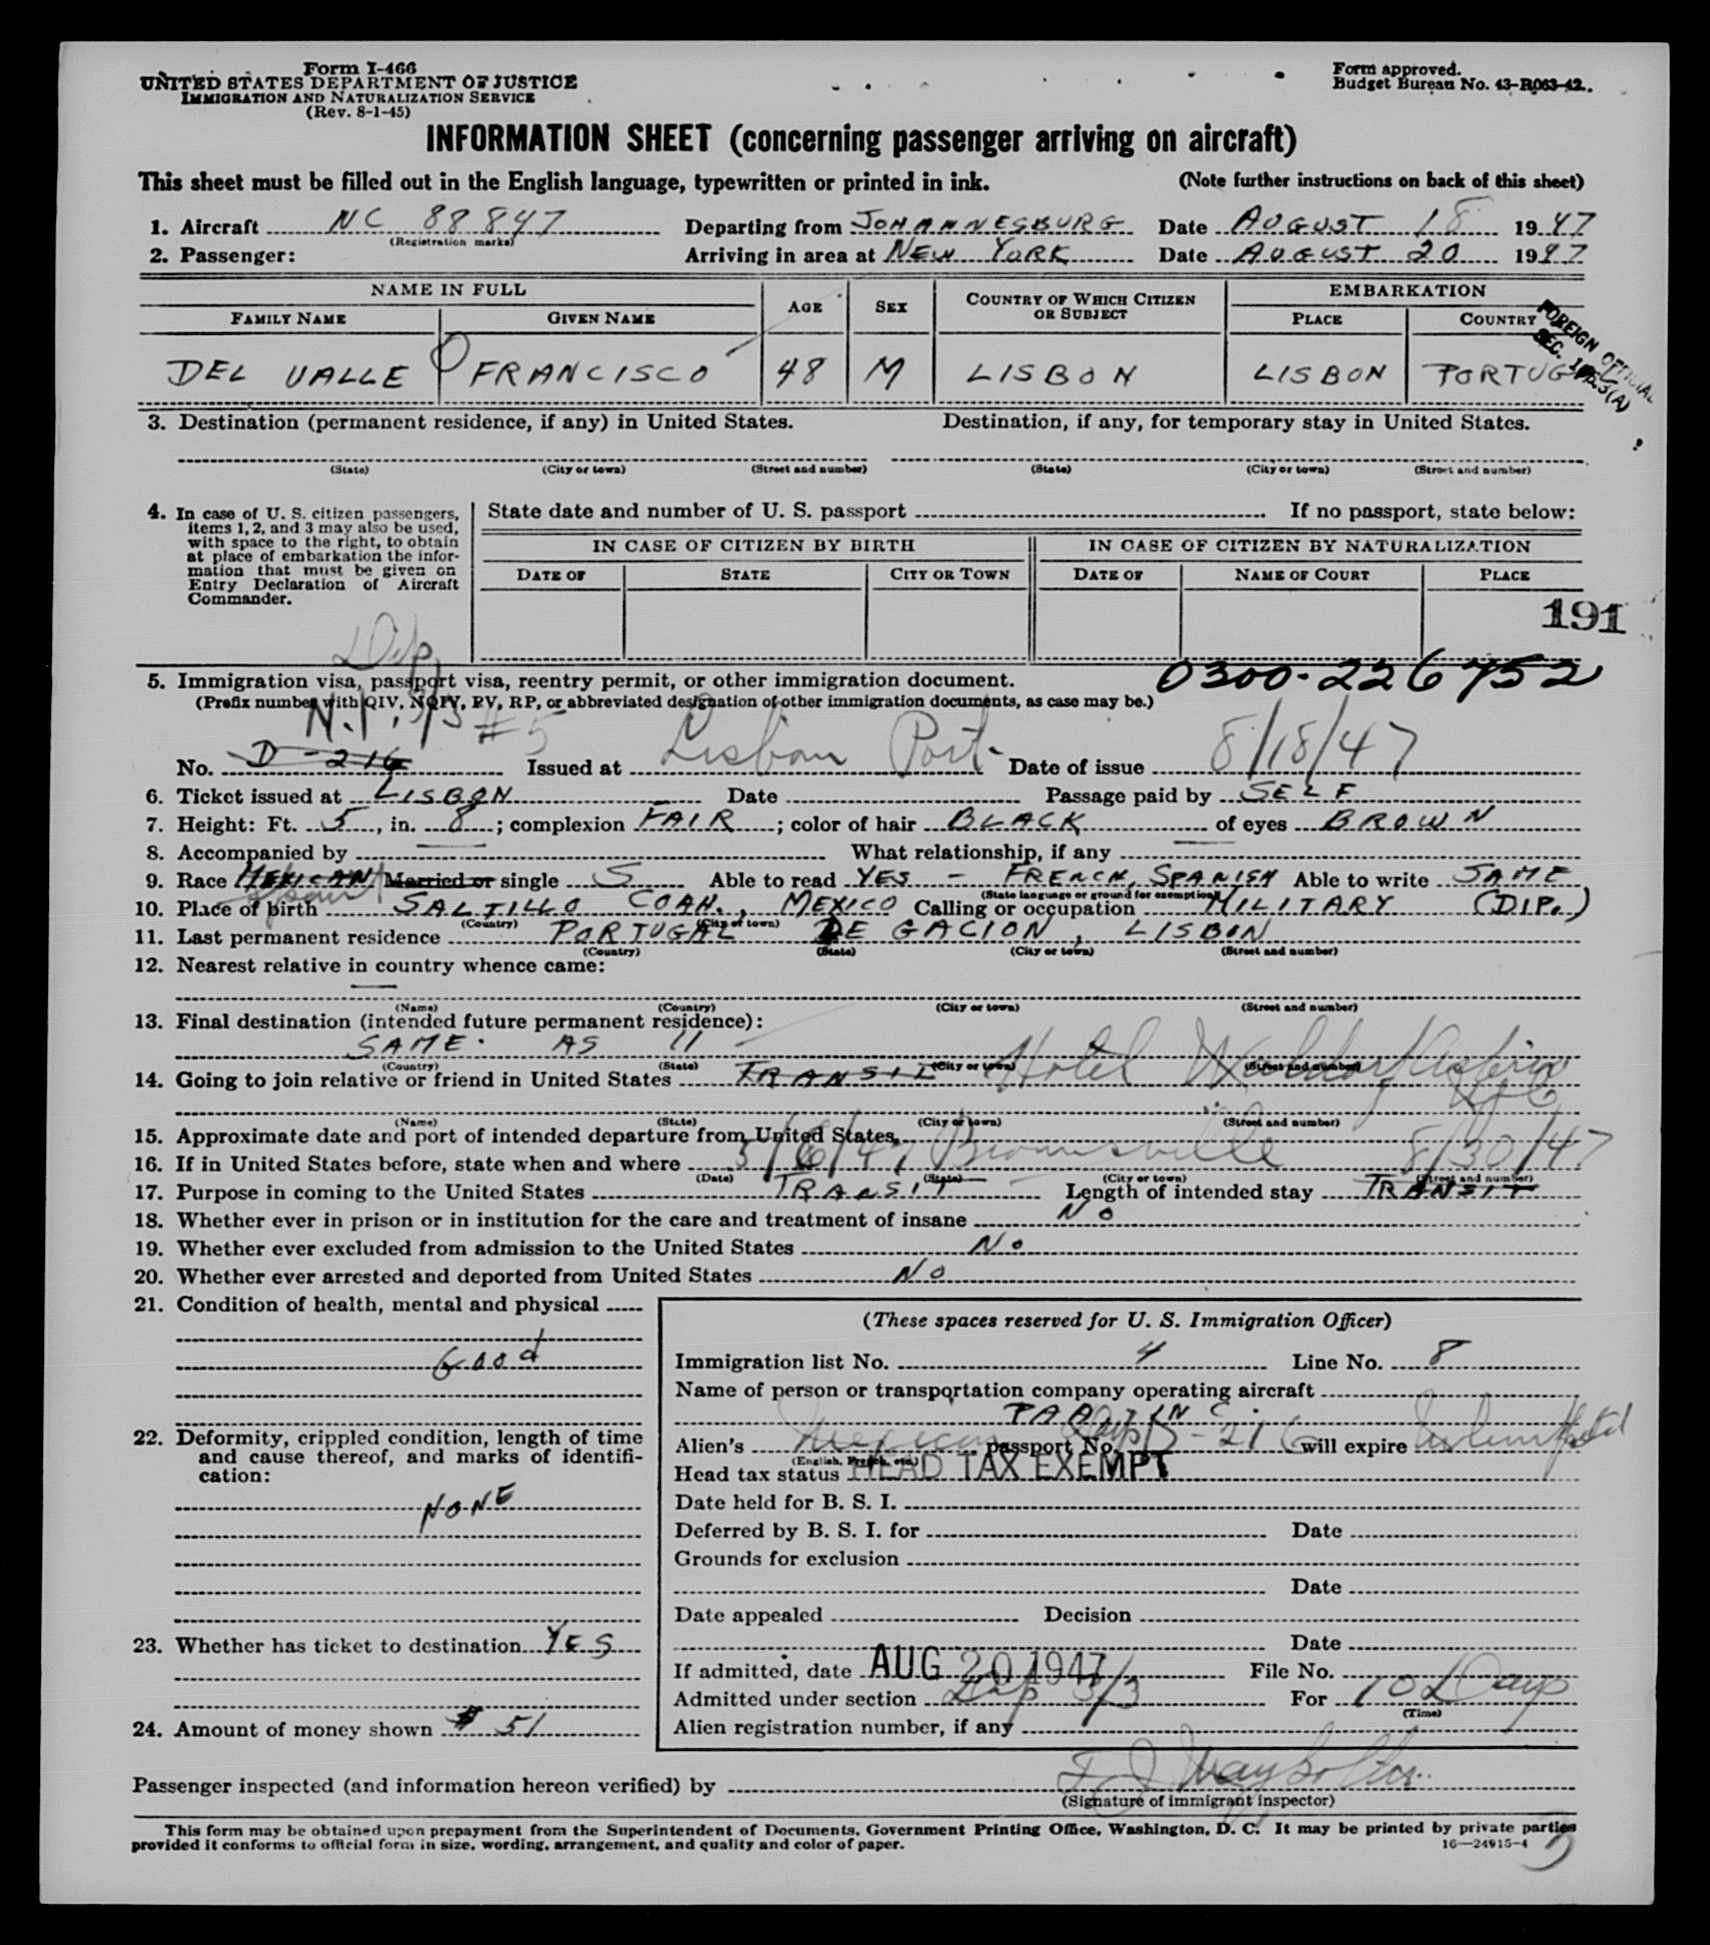 Form I-466
UNITED STATES DEPARTMENT OF JUSTICE
IMMIGRATION AND NATURALIZATION SERVICE
(Rev. 8-1-45)
Form approved.
Budget Bureau No. 43-R063-42.
INFORMATION SHEET (concerning passenger arriving on aircraft)
This sheet must be filled out in the English language, typewritten or printed in ink. (Note further instructions on back of this sheet)
1. Aircraft NC 88847 Departing from JOHANNESBURG Date AUGUST 18 1947
(Registration marks)
2. Passenger: Arriving in area at NEW YORK Date AUGUST 20 1947
NAME IN FULL AGE SEX COUNTRY OF WHICH CITIZEN OR SUBJECT EMBARKATION
FAMILY NAME GIVEN NAME PLACE COUNTRY
FOREIGN OFFICIAL
DEL VALLE FRANCISCO 48 M LISBON LISBON PORTUGAL
3. Destination (permanent residence, if any) in United States. Destination, if any, for temporary stay in United States.
(State) (City or town) (Street and number) (State) (City or town) (Street and number)
4. In case of U. S. citizen passengers, items 1, 2, and 3 may also be used, with space to the right, to obtain at place of embarkation the information that must be given on Entry Declaration of Aircraft Commander.
State date and number of U. S. passport If no passport, state below:
IN CASE OF CITIZEN BY BIRTH IN CASE OF CITIZEN BY NATURALIZATION
DATE OF STATE CITY OR TOWN DATE OF NAME OF COURT PLACE
191
Dip
5. Immigration visa, passport visa, reentry permit, or other immigration document. 0300-226752
(Prefix number with QIV, NQIV, PV, RP, or abbreviated designation of other immigration documents, as case may be.)
N.I. 3/3 #5
No. D-216 Issued at Lisbon Port. Date of issue 8/18/47
6. Ticket issued at LISBON Date Passage paid by SELF
7. Height: Ft. 5, in. 8; complexion FAIR; color of hair BLACK of eyes BROWN
8. Accompanied by — What relationship, if any —
9. Race MEXICAN Married or single S Able to read YES - FRENCH, SPANISH Able to write SAME
(State language or ground for exemption)
10. Place of birth SALTILLO COAH., MEXICO Calling or occupation MILITARY (DIP.)
(Country) (City or town)
11. Last permanent residence PORTUGAL DEGACION, LISBON
(Country) (State) (City or town) (Street and number)
12. Nearest relative in country whence came:
—
(Name) (Country) (City or town) (Street and number)
13. Final destination (intended future permanent residence):
SAME. AS 11
(Country) (State) (City or town) (Street and number)
14. Going to join relative or friend in United States TRANSIT Hotel Waldorf Astoria
(Name) (State) (City or town) (Street and number)
15. Approximate date and port of intended departure from United States
16. If in United States before, state when and where 5/6/47 Brownsville 8/30/47
(Date) (State) (City or town) (Street and number)
17. Purpose in coming to the United States TRANSIT Length of intended stay TRANSIT
18. Whether ever in prison or in institution for the care and treatment of insane NO
19. Whether ever excluded from admission to the United States NO
20. Whether ever arrested and deported from United States NO
21. Condition of health, mental and physical
Good
22. Deformity, crippled condition, length of time and cause thereof, and marks of identification:
NONE
23. Whether has ticket to destination YES
24. Amount of money shown $ 51
(These spaces reserved for U. S. Immigration Officer)
Immigration list No. 4 Line No. 8
Name of person or transportation company operating aircraft
PAA, INC.
Alien's Mexican passport No. D-216 will expire
(English, French, etc.)
Head tax status HEAD TAX EXEMPT
Date held for B. S. I.
Deferred by B. S. I. for Date
Grounds for exclusion
Date
Date appealed Decision
Date
If admitted, date AUG 20 1947 File No.
Admitted under section Dip 3/3 For 10 Days
(Time)
Alien registration number, if any
Passenger inspected (and information hereon verified) by
(Signature of immigrant inspector)
This form may be obtained upon prepayment from the Superintendent of Documents, Government Printing Office, Washington, D. C. It may be printed by private parties
provided it conforms to official form in size, wording, arrangement, and quality and color of paper. 16—24915-4